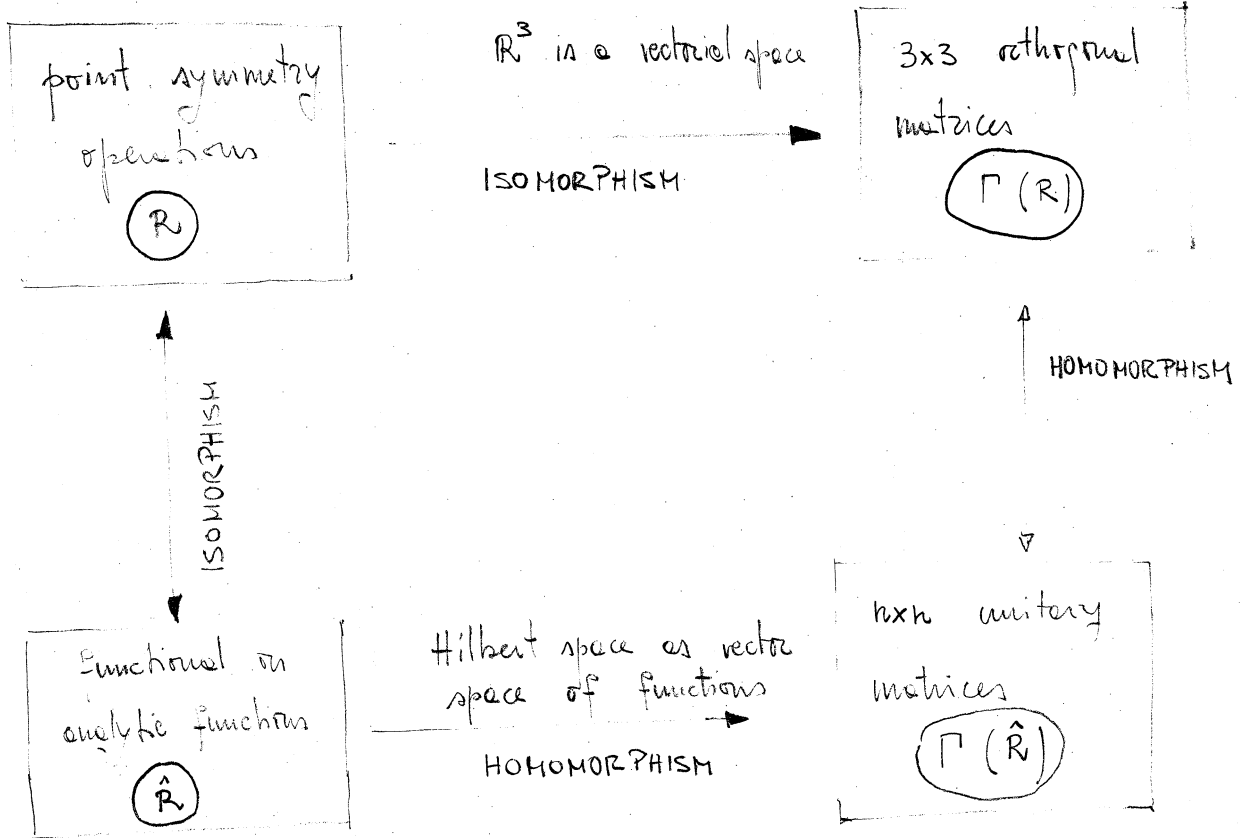 point symmetry
operations
R
ℝ³ is a vectorial space
ISOMORPHISM
3x3 orthogonal
matrices
Γ (R)
ISOMORPHISM
HOMOMORPHISM
Functional on
analytic functions
R̂
Hilbert space as vector
space of functions
HOMOMORPHISM
nxn unitary
matrices
Γ (R̂)